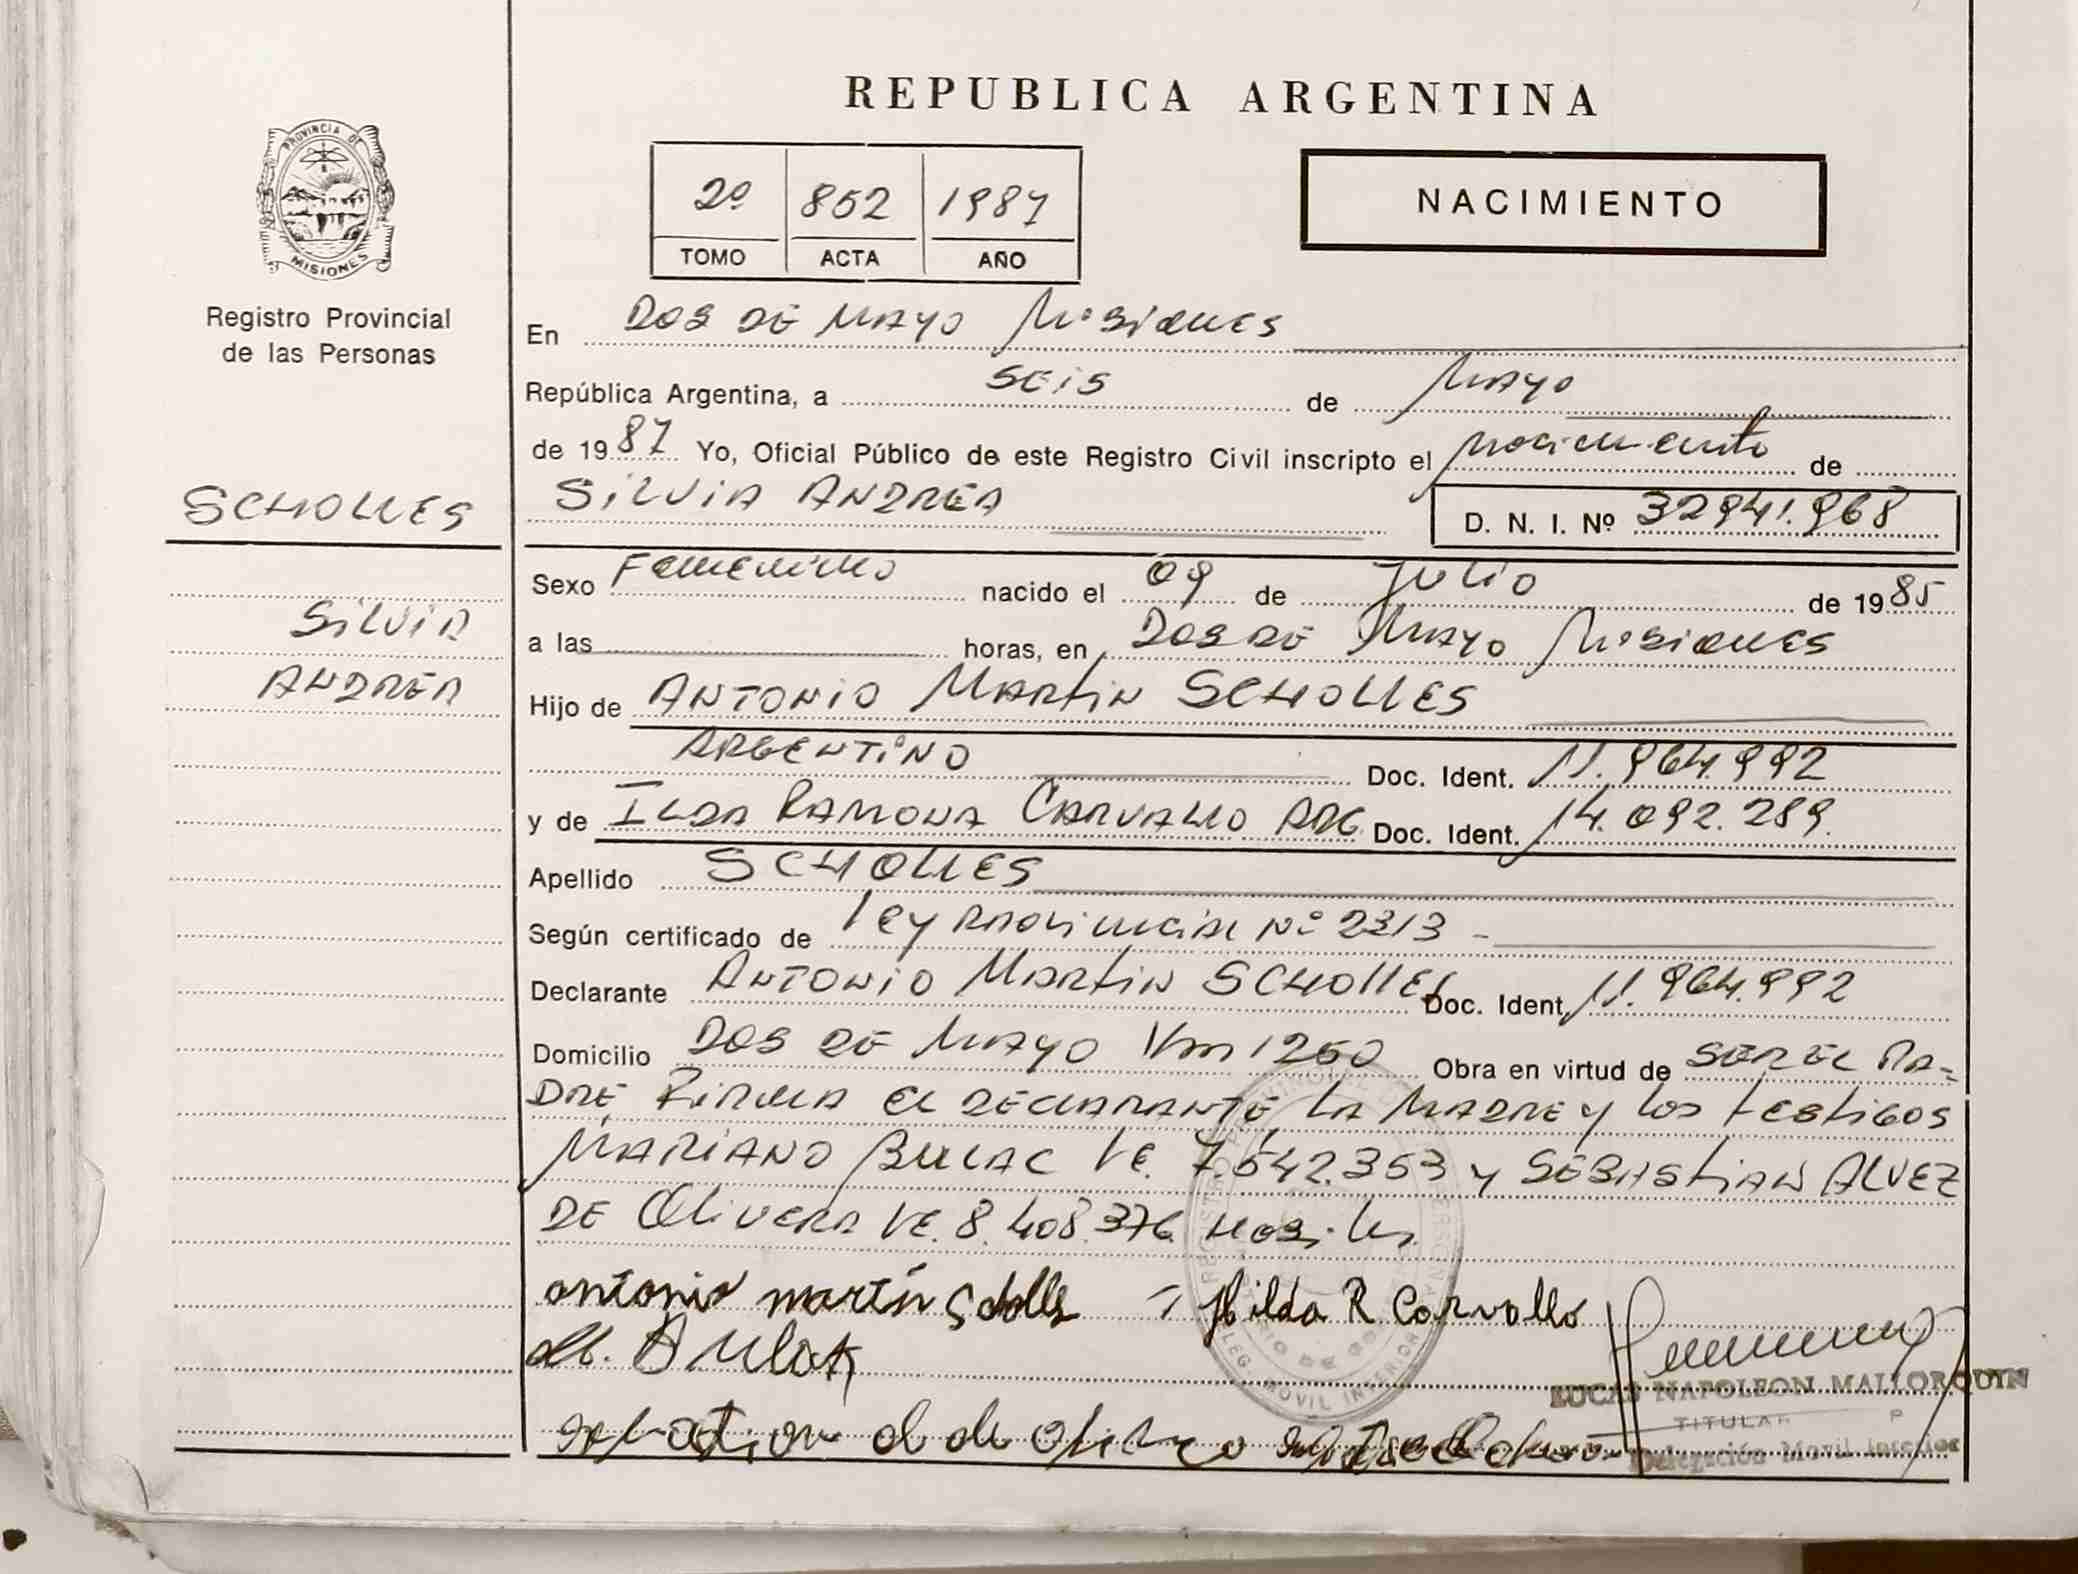 REPUBLICA ARGENTINA
PROVINCIA DE
MISIONES
Registro Provincial
de las Personas
2º 852 1987
TOMO ACTA AÑO
NACIMIENTO
En DOS DE MAYO Misiones
República Argentina, a SEIS de MAYO
de 1987 Yo, Oficial Público de este Registro Civil inscripto el nacimiento de
SCHOLLES
SILVIA ANDREA D. N. I. Nº 32941.968
Sexo Femenino nacido el 09 de Julio de 1985
SILVIA
a las horas, en DOS DE MAYO Misiones
ANDREA
Hijo de ANTONIO MARTIN SCHOLLES
ARGENTINO Doc. Ident. 11.964.992
y de ILDA RAMONA CARVALLO ARG. Doc. Ident. 14.092.289.
Apellido SCHOLLES
Según certificado de Ley Provincial Nº 2313
Declarante ANTONIO MARTIN SCHOLLES Doc. Ident. 11.964.992
Domicilio DOS DE MAYO Km 1260 Obra en virtud de SER EL PA-
DRE FIRMA EL DECLARANTE LA MADRE y los testigos
MARIANO BULAC LE. 7.542.353 y SEBASTIAN ALVEZ
DE OLIVERA LE. 8.408.376
antonio martin Scholles Hilda R Carvallo
LUCAS NAPOLEON MALLORQUIN
TITULAR
Delegación Movil Interior